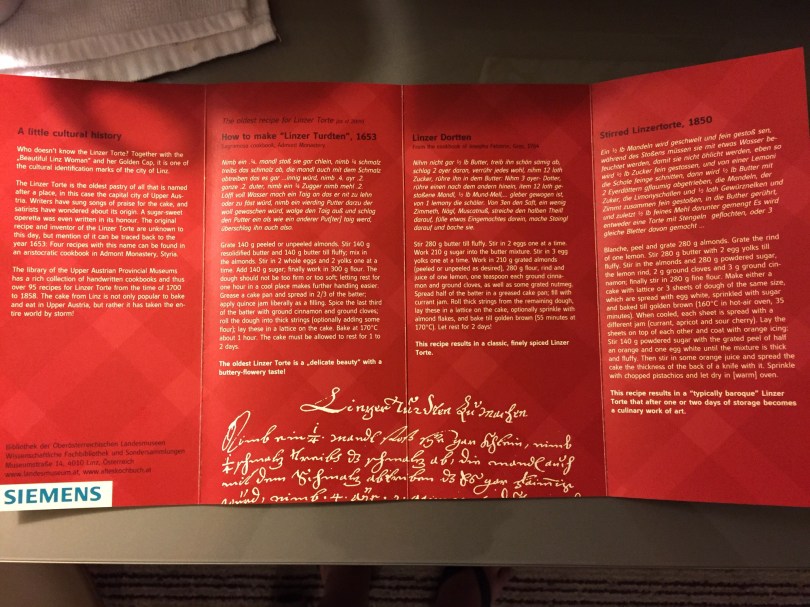 A little cultural history
Who doesn't know the Linzer Torte? Together with the
„Beautiful Linz Woman" and her Golden Cap, it is one of
the cultural identification marks of the city of Linz.
The Linzer Torte is the oldest pastry of all that is named
after a place, in this case the capital city of Upper Aus-
tria. Writers have sung songs of praise for the cake, and
satirists have wondered about its origin. A sugar-sweet
operetta was even written in its honour. The original
recipe and inventor of the Linzer Torte are unknown to
this day, but mention of it can be traced back to the
year 1653: Four recipes with this name can be found in
an aristocratic cookbook in Admont Monastery, Styria.
The library of the Upper Austrian Provincial Museums
has a rich collection of handwritten cookbooks and thus
over 95 recipes for Linzer Torte from the time of 1700
to 1858. The cake from Linz is not only popular to bake
and eat in Upper Austria, but rather it has taken the en-
tire world by storm!
Bibliothek der Oberösterreichischen Landesmuseen
Wissenschaftliche Fachbibliothek und Sondersammlungen
Museumstraße 14, 4010 Linz, Österreich
www.landesmuseum.at, www.altekochbuch.at
SIEMENS
The oldest recipe for Linzer Torte
How to make "Linzer Turdten", 1653
cookbook, Admont Monastery
Nimb ein ¼ mandl stoß sie gar chlein, nimb ¼ schmalz
treibs das schmalz ab, die mandl auch mit dem Schmalz
abtreiben das es gar würd, nimb 4. ayr 2.
ganze 2. duter, nimb ein ¼ Zugger nimb mehl 2.
Löffl voll Wasser mach ein Taig an das er nit zu lehn
oder zu fäst würd, nimb ein vierding Putter darau der
woll gewaschen würd, walge den Taig auß und schlag
den Putter ein als wie ein anderer Put[ter] taig werd,
überschlag ihn auch also.
Grate 140 g peeled or unpeeled almonds. Stir 140 g
resolidified butter and 140 g butter till fluffy; mix in
the almonds. Stir in 2 whole eggs and 2 yolks one at a
time. Add 140 g sugar; finally work in 300 g flour. The
dough should not be too firm or too soft; letting rest for
one hour in a cool place makes further handling easier.
Grease a cake pan and spread in 2/3 of the batter;
apply quince jam liberally as a filling. Spice the last third
of the batter with ground cinnamon and ground cloves;
roll the dough into thick strings (optionally adding some
flour); lay these in a lattice on the cake. Bake at 170°C
about 1 hour. The cake must be allowed to rest for 1 to
2 days.
The oldest Linzer Torte is a „delicate beauty" with a
buttery-flowery taste!
Linzer Turdten Zu machen
Linzer Dortten
From the cookbook of
Nihm nicht gar ½ lb Butter, treib ihn schön färnig ab,
schlag 2 ayer daran, verrühr jedes wohl, nihm 12 loth
Zucker, rühre ihn in dem Butter. Nihm 3 ayer-Dotter,
rühre einen nach dem andern hinein, item 12 loth ge-
stoßene Mandl, ½ lb Mund-Mell... gieber gewogen ist,
von 1 lemony die schäller. Von Jen den Saft, ein wenig
Zimmeth, Nägl, Muscatnuß, streiche den halben Theill
darauf, fülle etwas Eingemachtes darein, mache Staingl
darauf und bache sie.
Stir 280 g butter till fluffy. Stir in 2 eggs one at a time.
Work 210 g sugar into the butter mixture. Stir in 3 egg
yolks one at a time. Work in 210 g grated almonds
(peeled or unpeeled as desired), 280 g flour, rind and
juice of one lemon, one teaspoon each ground cinna-
mon and ground cloves, as well as some grated nutmeg.
Spread half of the batter in a greased cake pan; fill with
currant jam. Roll thick strings from the remaining dough,
lay these in a lattice on the cake, optionally sprinkle with
almond flakes, and bake till golden brown (55 minutes at
170°C). Let rest for 2 days!
This recipe results in a classic, finely spiced Linzer
Torte.
Stirred Linzertorte, 1850
Ein ½ lb Mandeln wird geschwelt und fein gestoß sen,
während des Stoßens müssen sie mit etwas Wasser be-
feuchtet werden, damit sie nicht öhlicht werden, eben so
wird ½ lb Zucker fein gestossen, und von einer Lemoni
die Schale länge schnitten, dann wird ½ lb Butter mit
2 Eyerdöttern pflaumig abgetrieben, die Mandeln, der
Zuker, die Limonyschollen und ½ loth Gewürznelken und
Zimmt zusammen fein gestoßen, in die Buther gerührt,
und zuletzt ½ lb feines Mehl darunter gemengt Es wird
entweder eine Torte mit Stengeln geflochten, oder 3
gleiche Bletter davon gemacht ...
Blanche, peel and grate 280 g almonds. Grate the rind
of one lemon. Stir 280 g butter with 2 egg yolks till
fluffy. Stir in the almonds and 280 g powdered sugar,
the lemon rind, 2 g ground cloves and 3 g ground cin-
namon; finally stir in 280 g fine flour. Make either a
cake with lattice or 3 sheets of dough of the same size,
which are spread with egg white, sprinkled with sugar
and baked till golden brown (160°C in hot-air oven, 35
minutes). When cooled, each sheet is spread with a
different jam (currant, apricot and sour cherry). Lay the
sheets on top of each other and coat with orange icing:
Stir 140 g powdered sugar with the grated peel of half
an orange and one egg white until the mixture is thick
and fluffy. Then stir in some orange juice and spread the
cake the thickness of the back of a knife with it. Sprinkle
with chopped pistachios and let dry in (warm) oven.
This recipe results in a "typically baroque" Linzer
Torta that after one or two days of storage becomes
a culinary work of art.